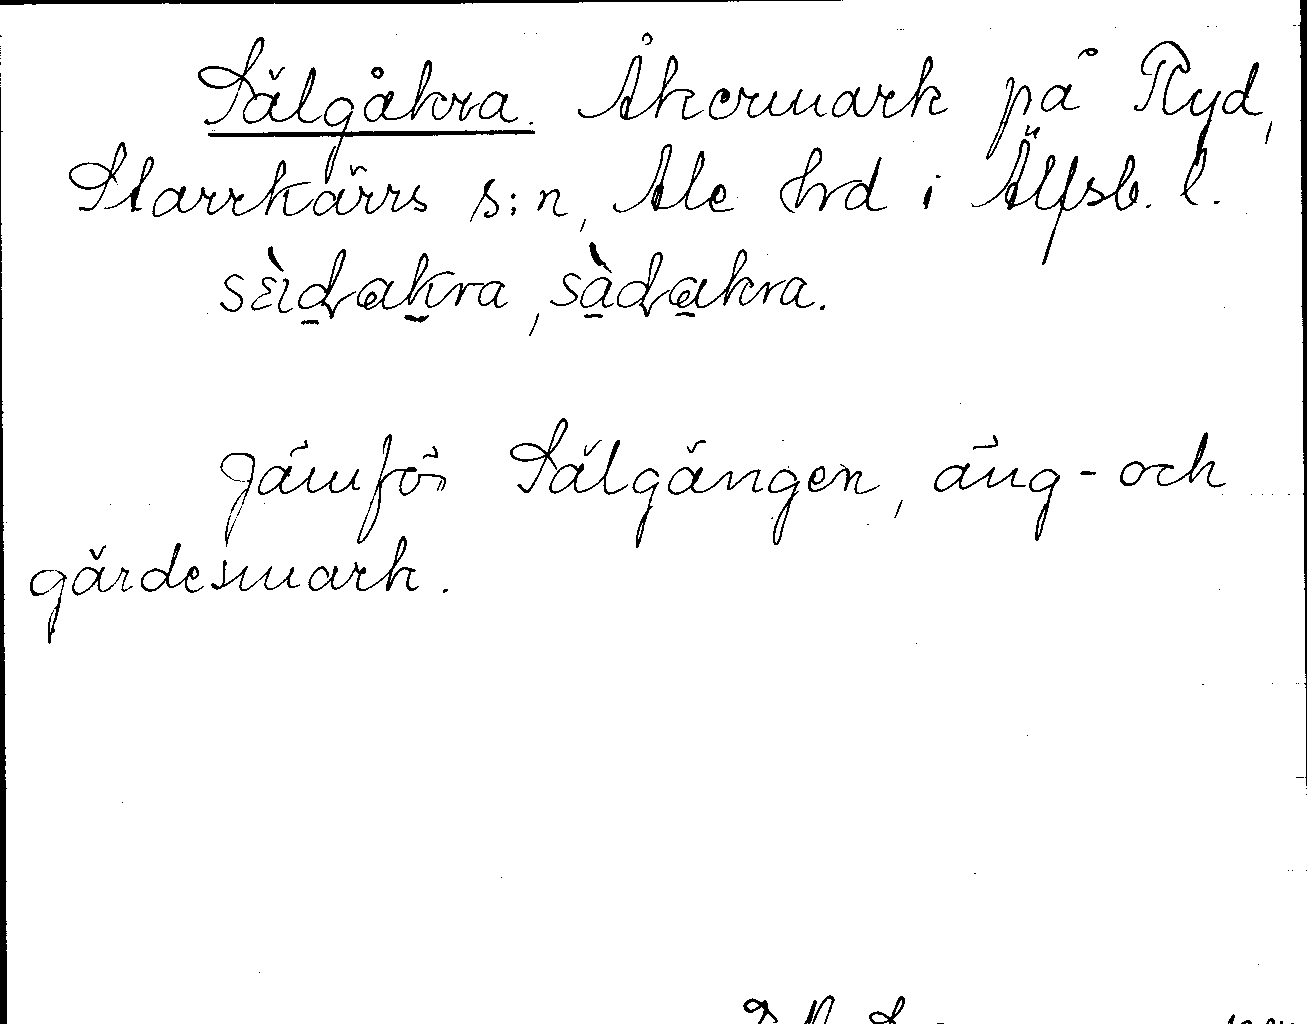 Sälgåkra. Åkermark på Ryd,
Starrkärrs s:n, Ale hrd i Älfsb. l.
sàdrakra.
Jämför Sälgängen, äng- och
gärdesmark.